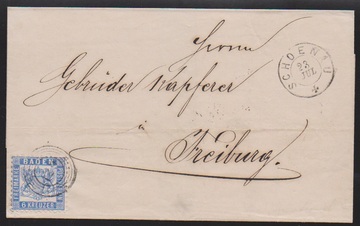 Herrn
Gebrüder Kapferer
in
Freiburg.
SCHOENAU
23
JUL
BADEN
FREIMARKE
6 KREUZER